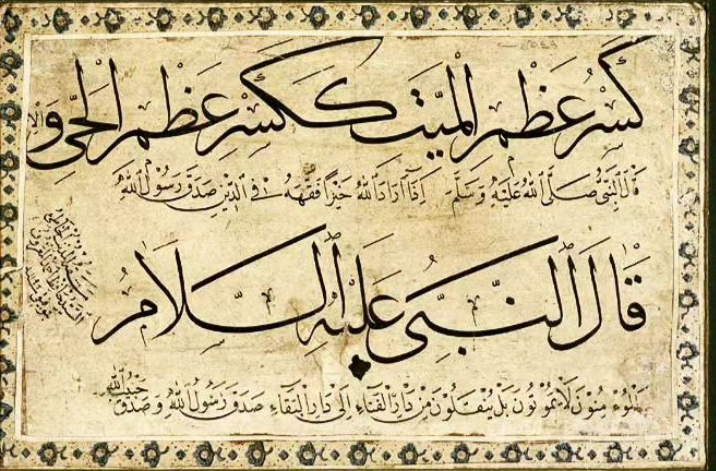 كَسْرُ عَظْمِ الْمَيِّتِ كَكَسْرِ عَظْمِ الْحَيِّ وَ
قَالَ النَّبِيُّ صَلَّى اللهُ عَلَيْهِ وَسَلَّمَ إِذَا أَرَادَ اللهُ خَيْرًا فَقَّهَهُ فِي الدِّيْنِ صَدَقَ رَسُولُ اللهِ
قَالَ النَّبِيُّ عَلَيْهِ السَّلَامُ
الْمُؤْمِنُونَ لَا يَمُوتُونَ بَلْ يَنْتَقِلُونَ مِنْ دَارِ الْفَنَاءِ إِلَى دَارِ الْبَقَاءِ صَدَقَ رَسُولُ اللهِ وَصَدَقَ حَبِيبُ اللهِ